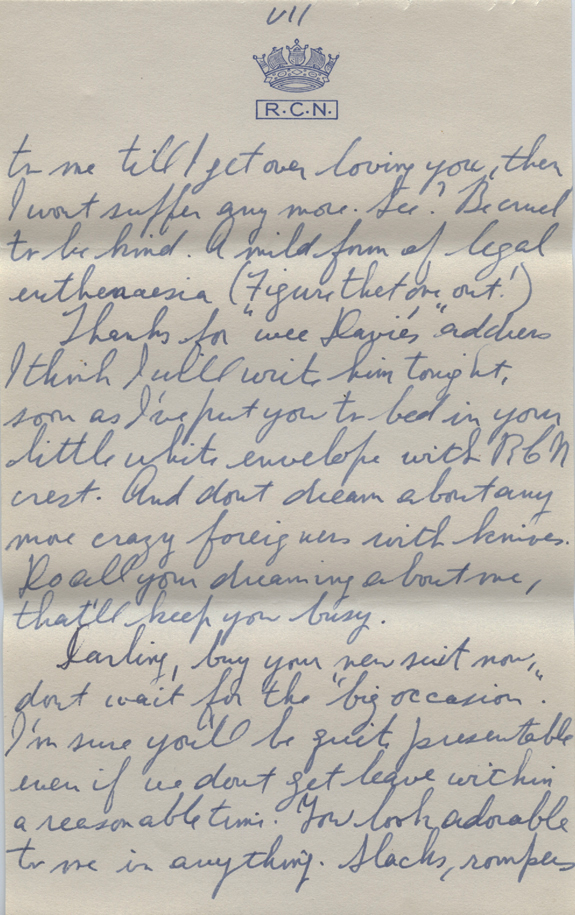 VII
R.C.N.
to me till I get over loving you, then
I wont suffer any more. See? Be cruel
to be kind. A mild form of legal
enthenaesia (Figure thet one out!)
Thanks for "wee Davie's" address
I think I will write him tonight,
soon as I've put you to bed in your
little white envelope with RCN
crest. And dont dream about any
more crazy foreigners with knives.
Do all your dreaming about me,
that'll keep you busy.
Darling, buy your new suit now,
dont wait for the "big occasion".
I'm sure you'll be quite presentable
even if we dont get leave within
a reasonable time. You look adorable
to me in anything. Slacks, rompers